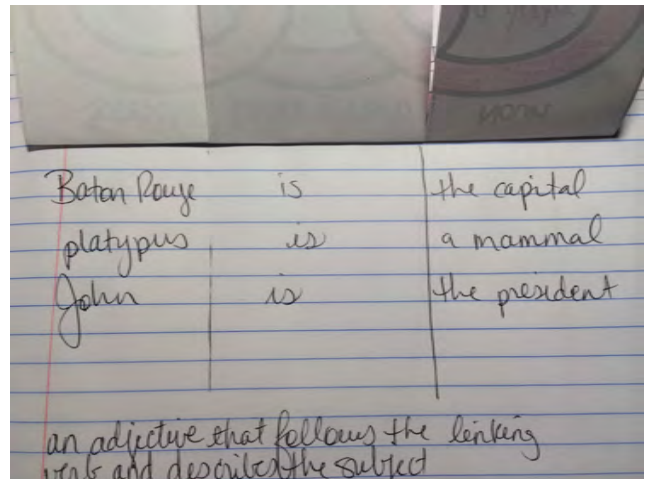 Baton Rouge is the capital
platypus is a mammal
John is the president
an adjective that follows the linking
verb and describes the subject